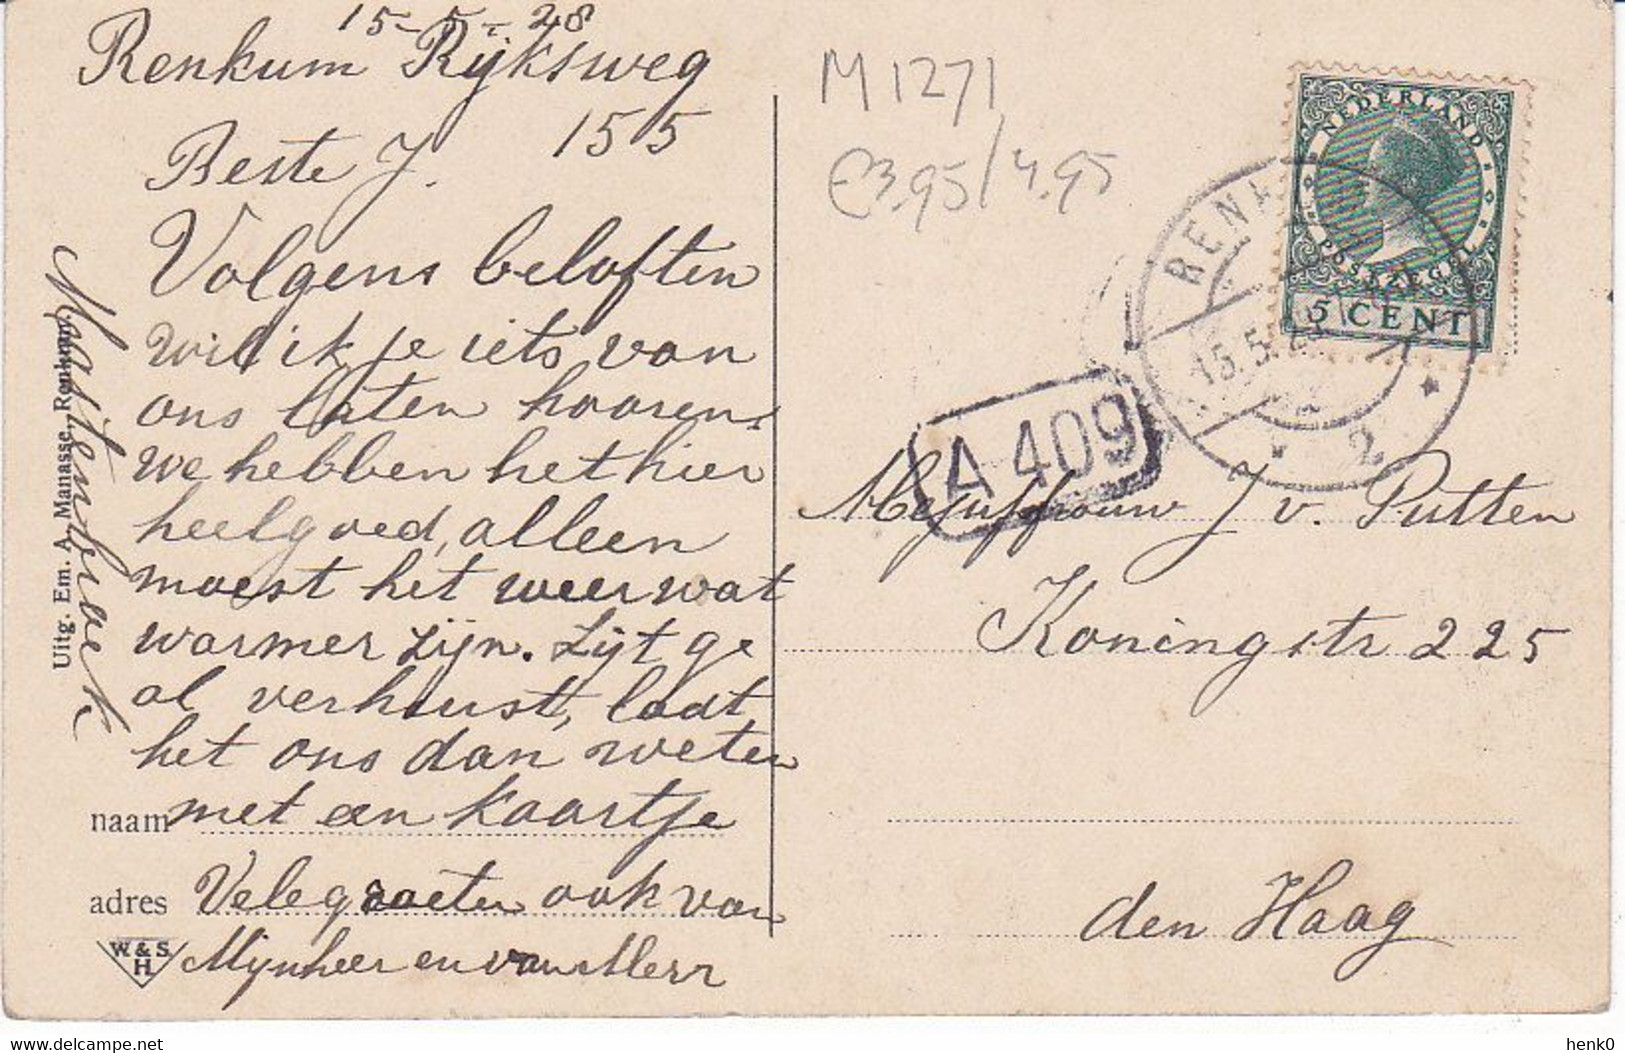 15-5-28
Renkum Rijksweg
155
Beste J.
Volgens beloften
wil ik je iets van
ons laten hooren.
We hebben het hier
heel goed, alleen
moest het weer wat
warmer zijn. Zijt ge
al verhuist, laat
het ons dan weten
naam met een kaartje
adres Vele groeten ook van
Mijnheer en van Merr
Mastenbroek
Uitg. Em. A. Manasse, Renkum
W. & S.
H.
M1271
€3.95/4.95
NEDERLAND
POSTZEGEL
5 CENT
15.5.2
2
A 409
Mejuffrouw J v. Putten
Koningstr 225
den Haag
henk0